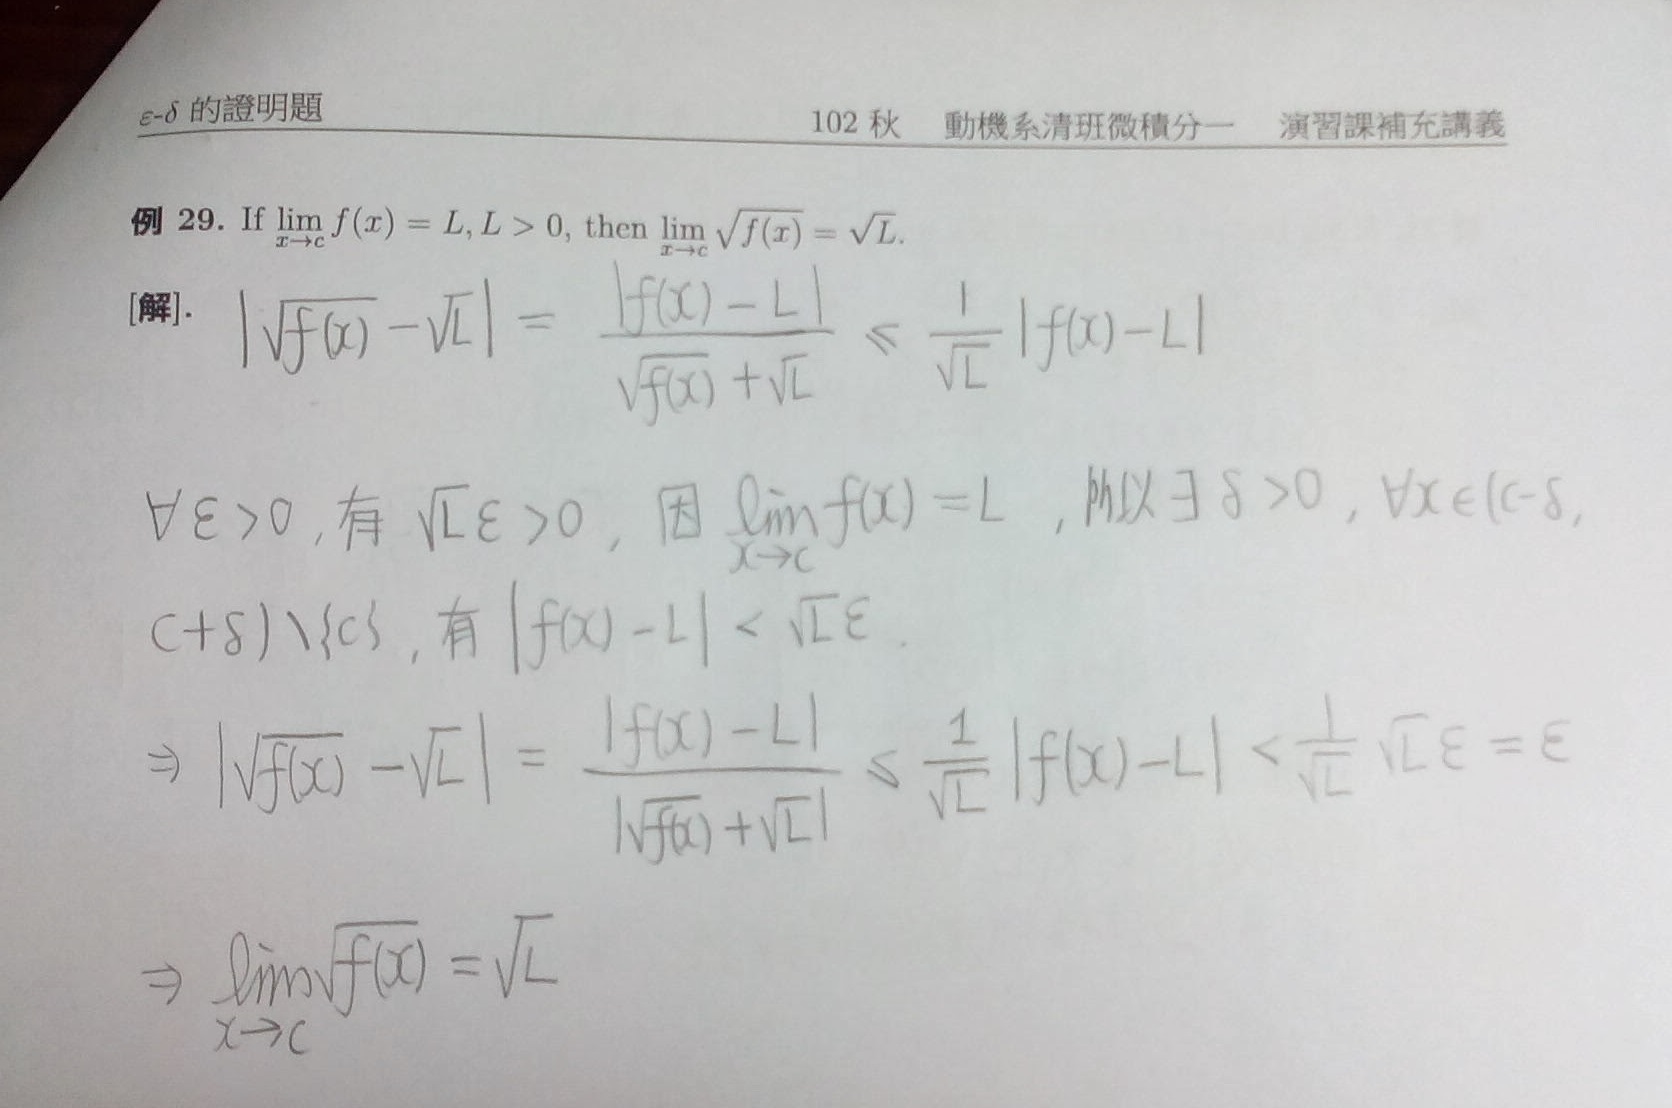 ε-δ 的證明題 102 秋 動機系清班微積分一 演習課補充講義
例 29. If lim_{x→c} f(x) = L, L > 0, then lim_{x→c} √f(x) = √L.
[解]. |√f(x) − √L| = |f(x) − L| / (√f(x) + √L) ≤ 1/√L |f(x) − L|
∀ε>0, 有 √L ε>0, 因 lim_{x→c} f(x) = L, 所以 ∃ δ>0, ∀x∈(c-δ,
c+δ)\{c}, 有 |f(x) − L| < √L ε.
⇒ |√f(x) − √L| = |f(x) − L| / |√f(x) + √L| ≤ 1/√L |f(x) − L| < 1/√L √L ε = ε
⇒ lim_{x→c} √f(x) = √L